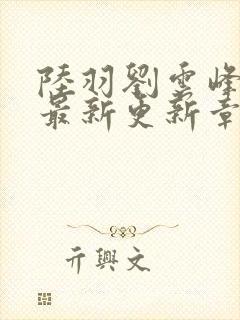 陸羽劉雲峰
最新更新章
亓興文